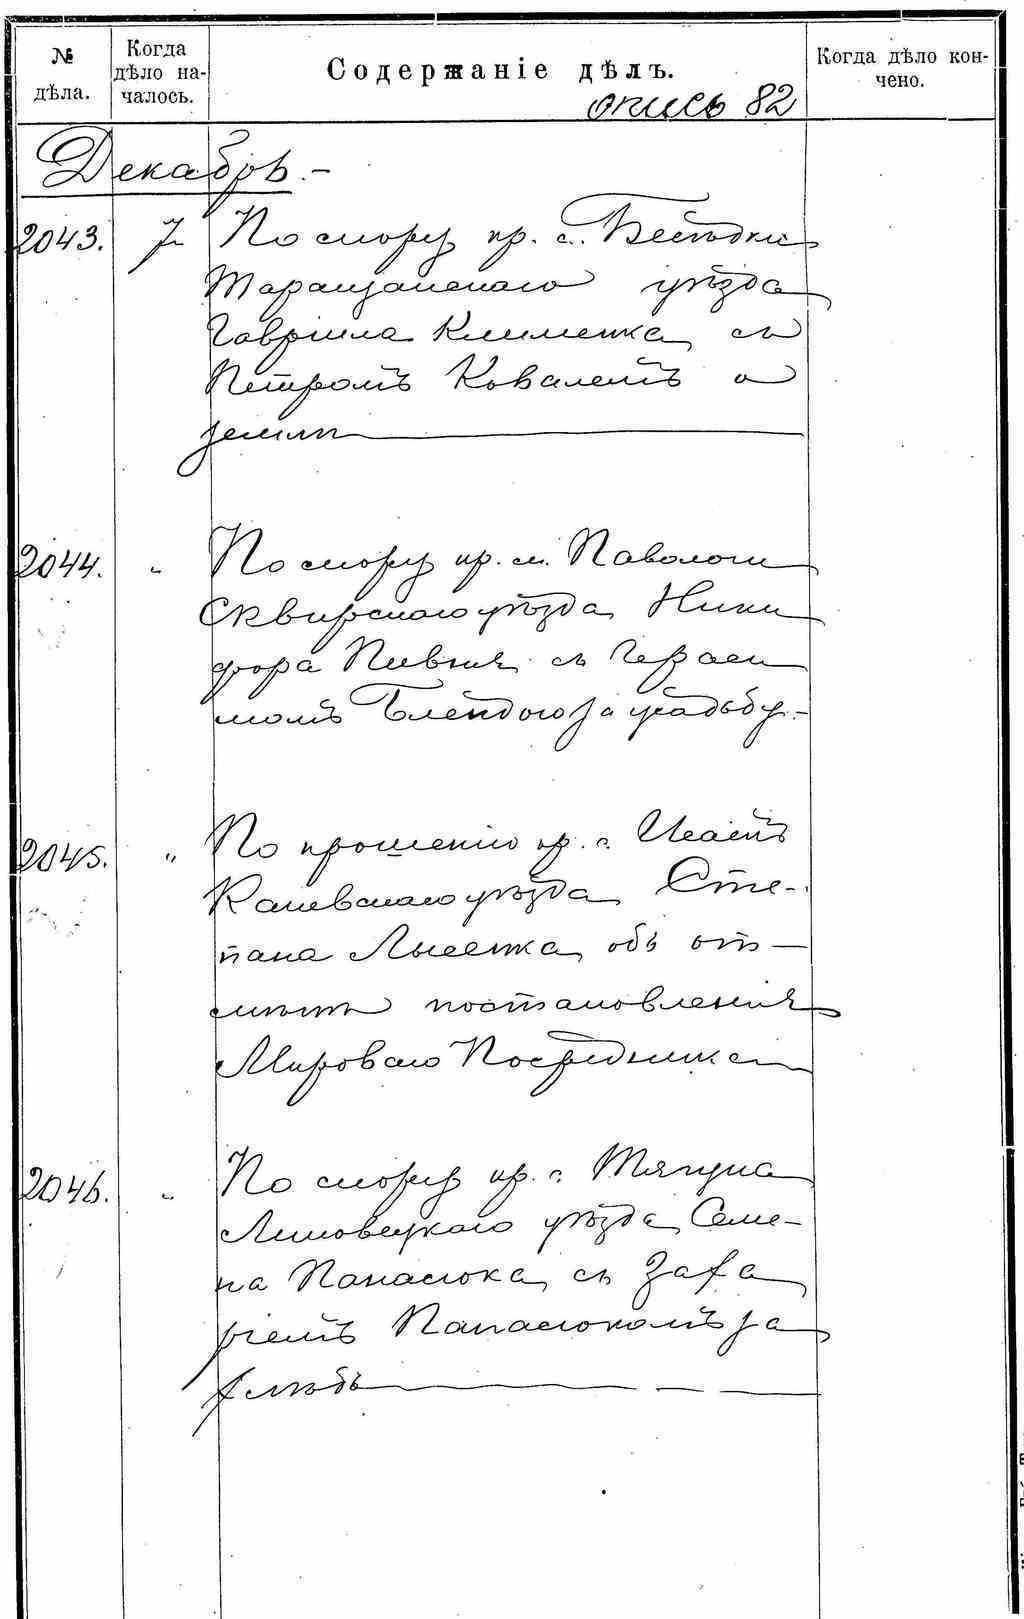 № дѣла.
Когда дѣло на-
чалось.
Содержаніе дѣлъ.
Когда дѣло кон-
чено.
опись 82
Декабрь.-
2043. 7 По спору кр. с. Бесѣдки
Таращанскаго уѣзда
Гавріила Клименка съ
Петромъ Ковалемъ о
землѣ
2044. „ По спору кр. м. Паволочи
Сквирскаго уѣзда Ники
фора Пивня съ Гераси
момъ за усадьбу.-
2045. „ По прошенію кр. с. Исаекъ
Каневскаго уѣзда Сте-
пана Лысенка объ от-
мѣнѣ постановленія
Мироваго Посредника
2046. „ По спору кр. с. Тягуна
Липовецкаго уѣзда Семе-
на Панасюка съ Заха
ріемъ Панасюкомъ за
хлѣбъ